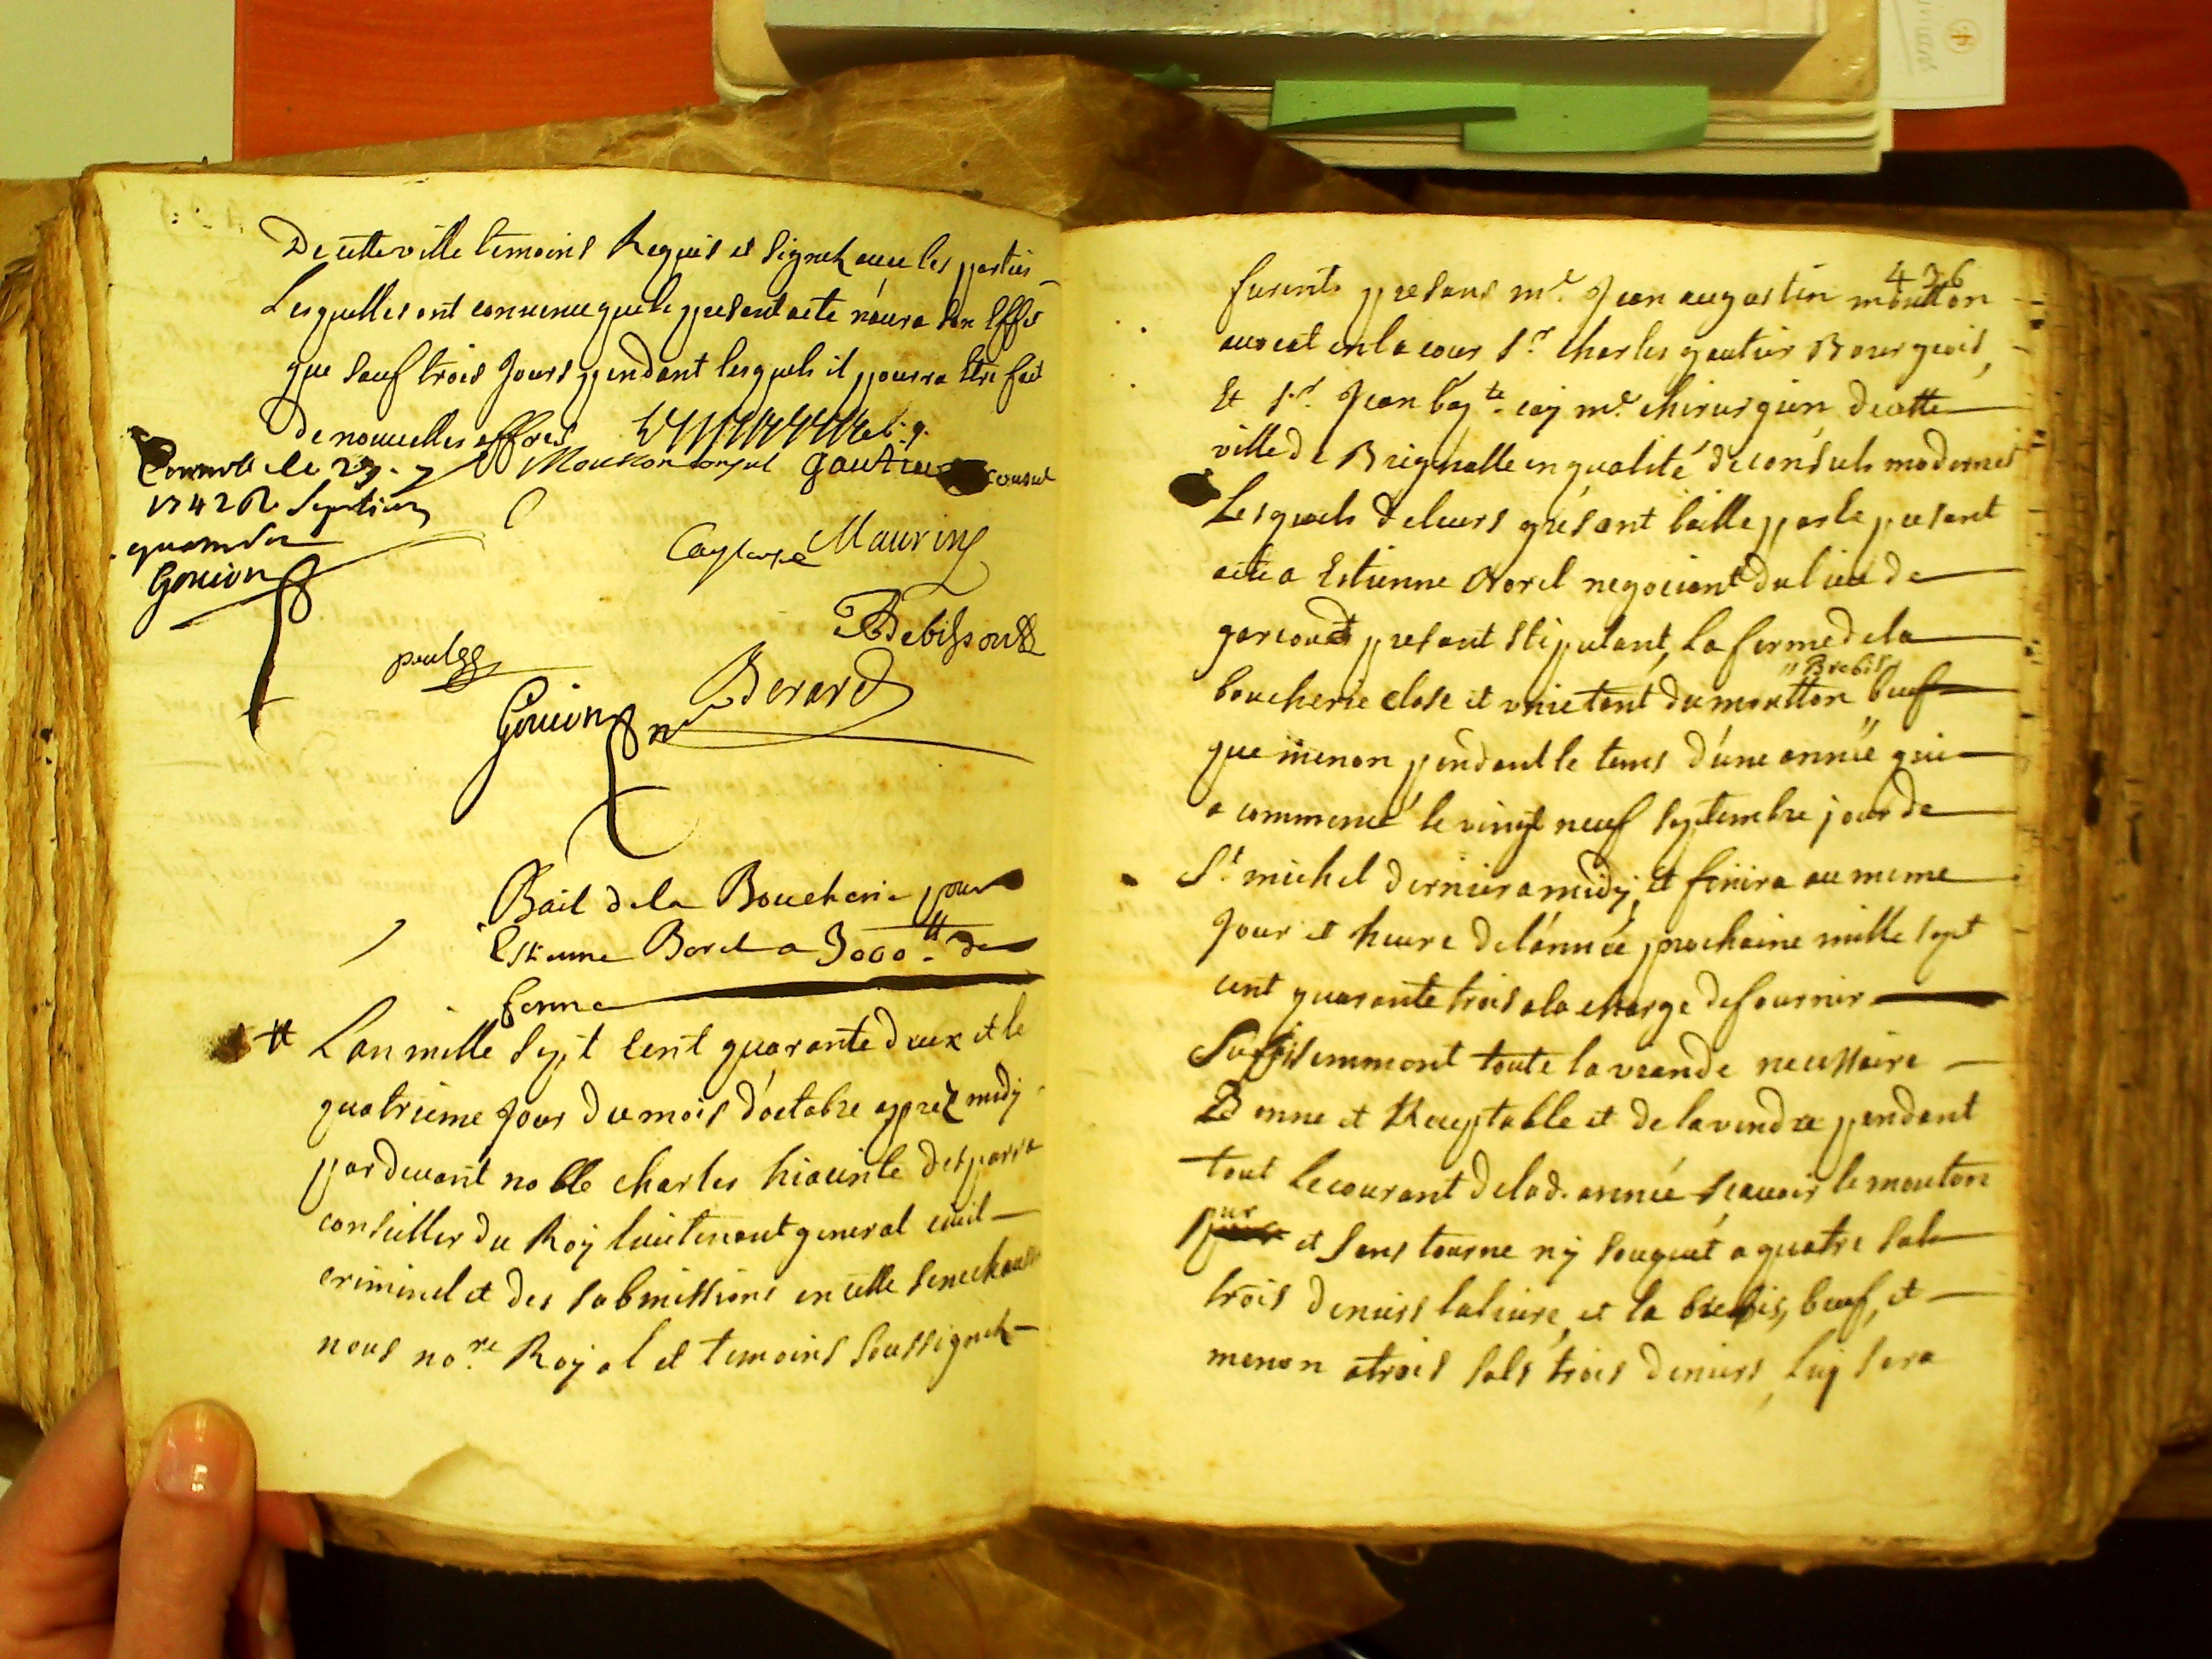 De cette ville temoins Requis et signez avec les parties
Lesquelles ont convenu que le present acte n'aura son Effet
que sauf trois Jours pendant lesquels il pourra Etre fait
de nouvelles offres
Controlé le 29. 7
1742 R. Sept livres
Gouion
Moutton consul gautier consul
Maurin
Debissouse
Berard
Gouion nre
Bail de la Boucherie pour
Estienne Borel a 3000 tt de
ferme
L'an mille sept cent quarante deux et le
quatrieme Jour du mois d'octobre apprez midy
pardevant noble charles hiacinte desparra
conseiller du Roy lieutenant general civil
criminel et des submissions en cette senechaussee
nous nore. Royal et temoins soussignez
436
furents presans me. Jean augustin moutton
avocat en la cour sr. charles gautier Bourgeois,
Et sr. Jean bapte. caÿ me. chirurgien de cette
ville de Brignolle en qualité de consuls modernes
Lesquels de leurs gré sont baille par le presant
acte a Estienne Borel negociant du lieu de
garcoult presant stipulant, La ferme de la
"Brebis,
boucherie close et unie tant du moutton beuf
que menon pendant le tems d'une année qui
a commencé le vingt neuf septembre jour de
St. michel dernier a midy, et finira au meme
Jour et heure de l'année prochaine mille sept
cent quarante trois a la charge de fournir
Suffisemmont toute la viande necessaire
Bonne et Receptable et de la vendre pendant
tout le courant de lad. année scavoir le mouton
pur et sans tourne nÿ souquet a quatre sols
trois deniers la livre, et la brebis, beuf, et
menon a trois sols trois deniers, Luÿ sera